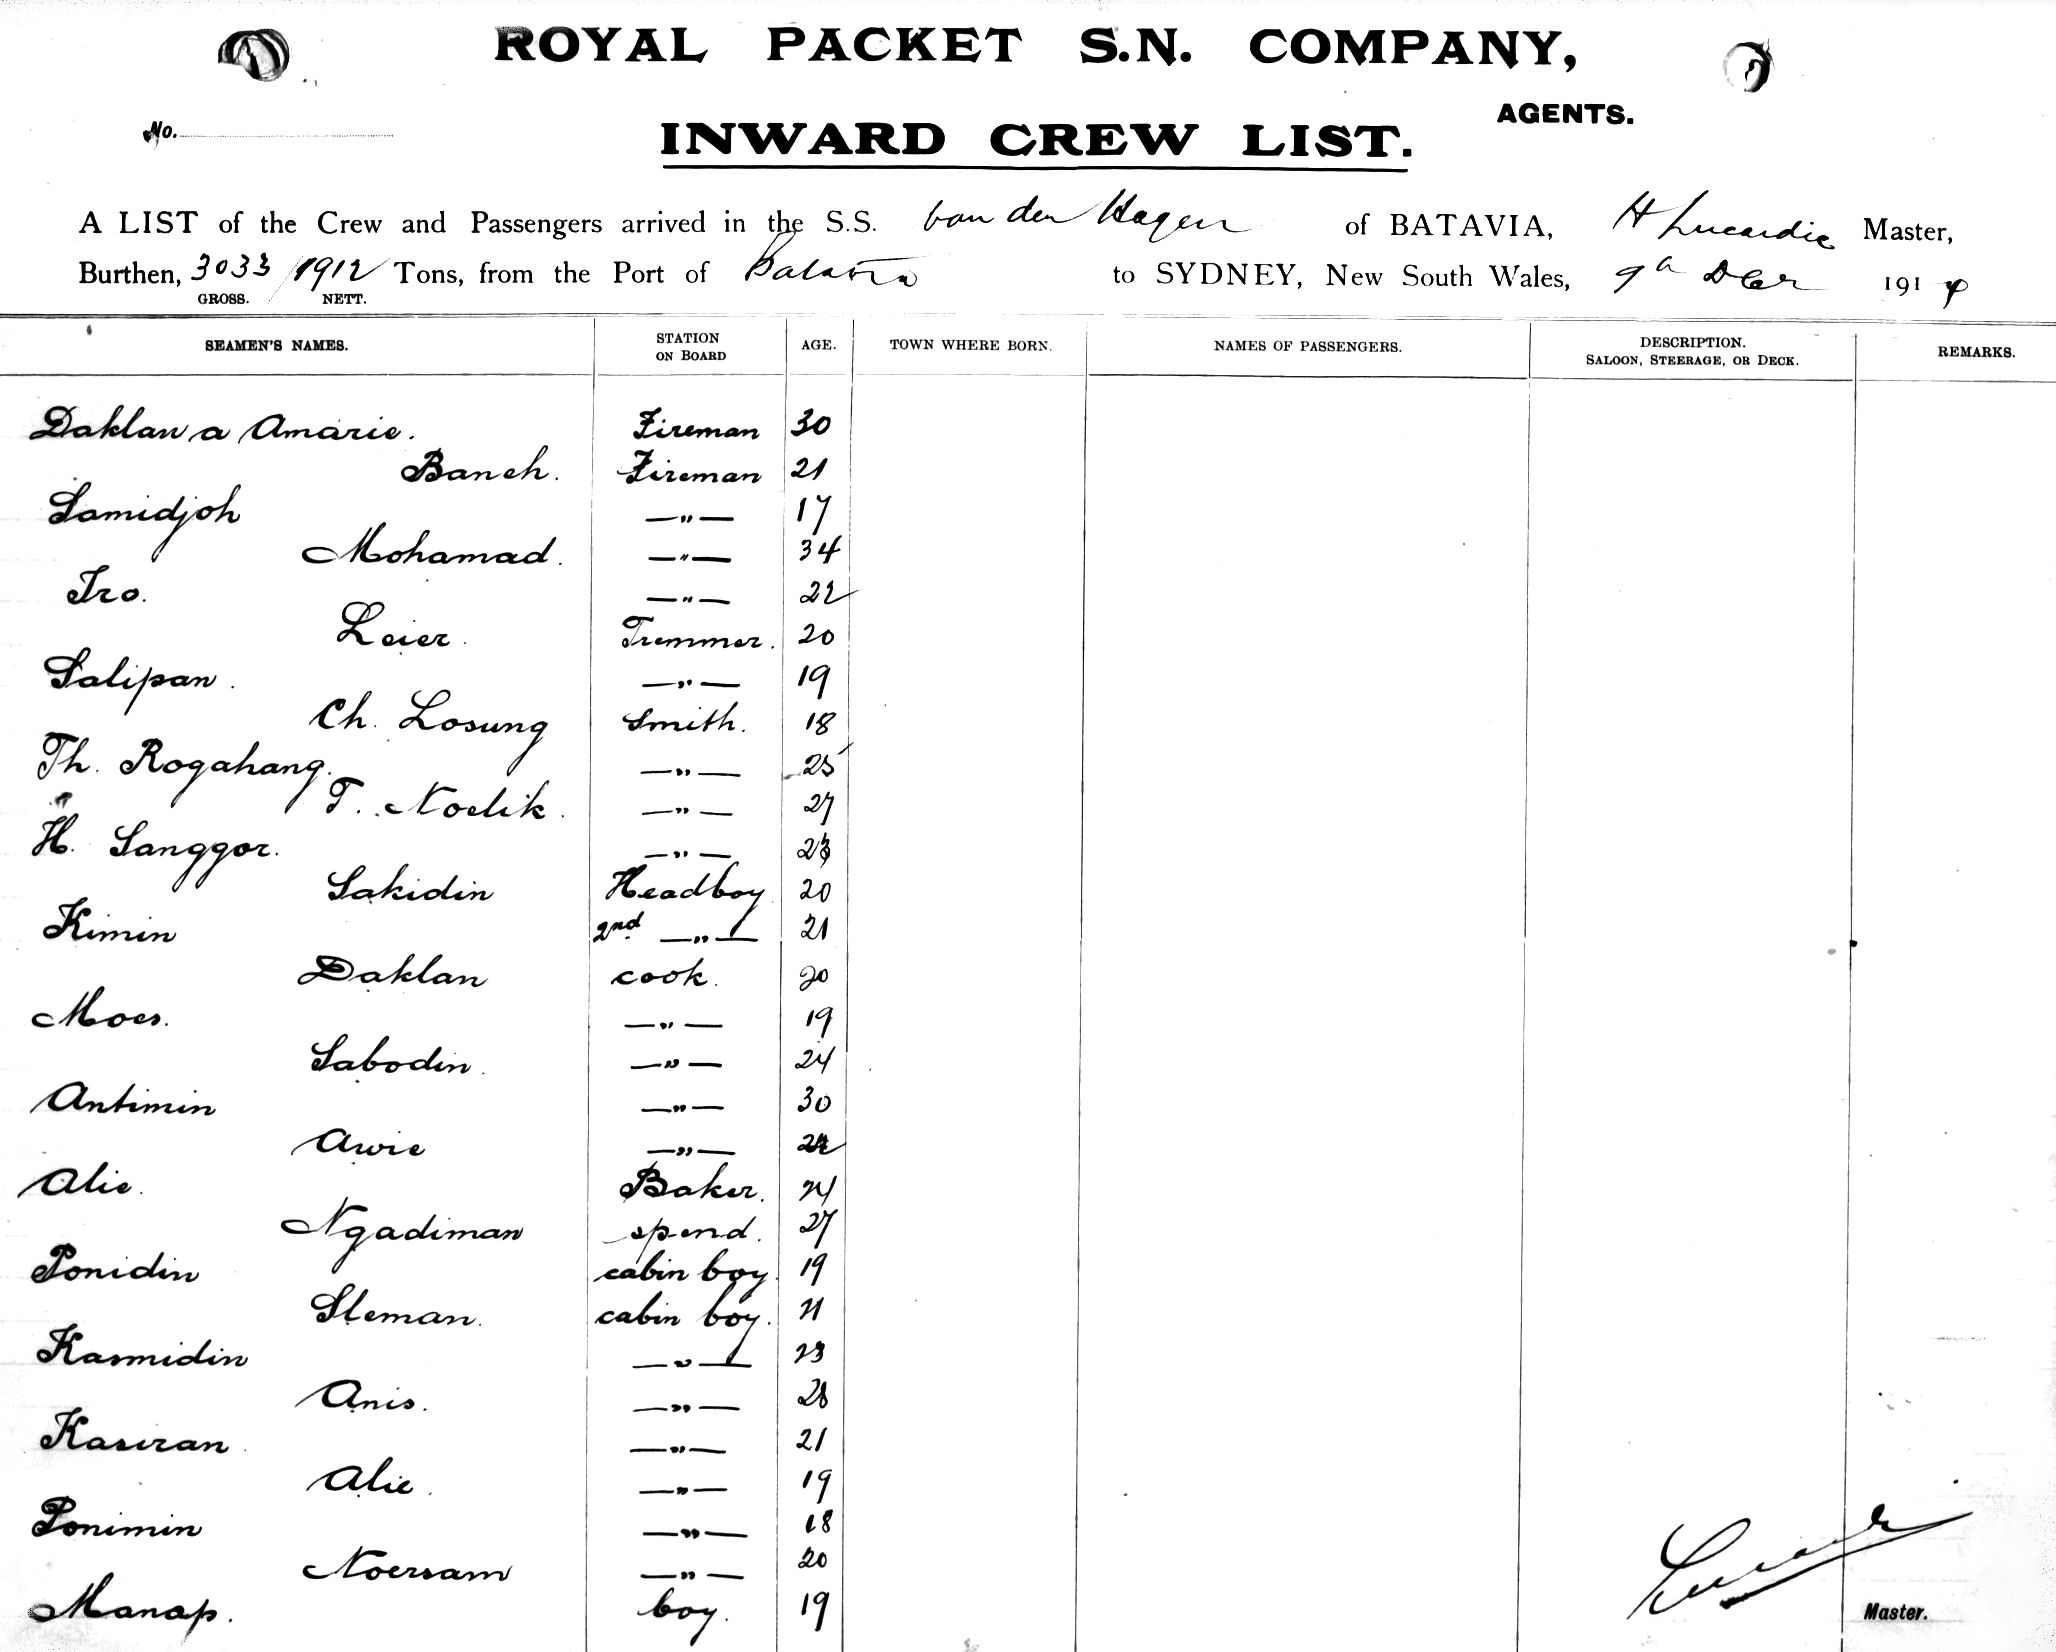 ROYAL PACKET S.N. COMPANY,
AGENTS.
No.
INWARD CREW LIST.
A LIST of the Crew and Passengers arrived in the S.S. van den Hagen of BATAVIA, H Lucardie Master,
Burthen, 3033 / 1912 Tons, from the Port of Batavia to SYDNEY, New South Wales, 9th Dec 1914
GROSS. NETT.
SEAMEN'S NAMES. STATION ON BOARD AGE. TOWN WHERE BORN. NAMES OF PASSENGERS. DESCRIPTION. SALOON, STEERAGE, OR DECK. REMARKS.
Daklan a Amarie. Fireman 30
Baneh. Fireman 21
Samidjoh —"— 17
Mohamad. —"— 34
Iro. —"— 22
Leier. Tremmer. 20
Salipan. —"— 19
Ch. Losung Smith. 18
Th. Rogahang. —"— 25
T. Noelik. —"— 27
H. Sanggor. —"— 23
Sakidin Headboy 20
Kimin 2nd —"— 21
Daklan cook. 20
Moes. —"— 19
Sabodin. —"— 24
Antimin —"— 30
Awie —"—
Alie. Baker. 24
Ngadiman spend. 27
Ponidin cabin boy. 19
Sleman. cabin boy. 21
Kasmidin —"— 23
Anis. —"— 28
Kasiran —"— 21
Alie. —"— 19
Ponimin —"— 18
Noersam —"— 20
Manap. boy. 19
Master.